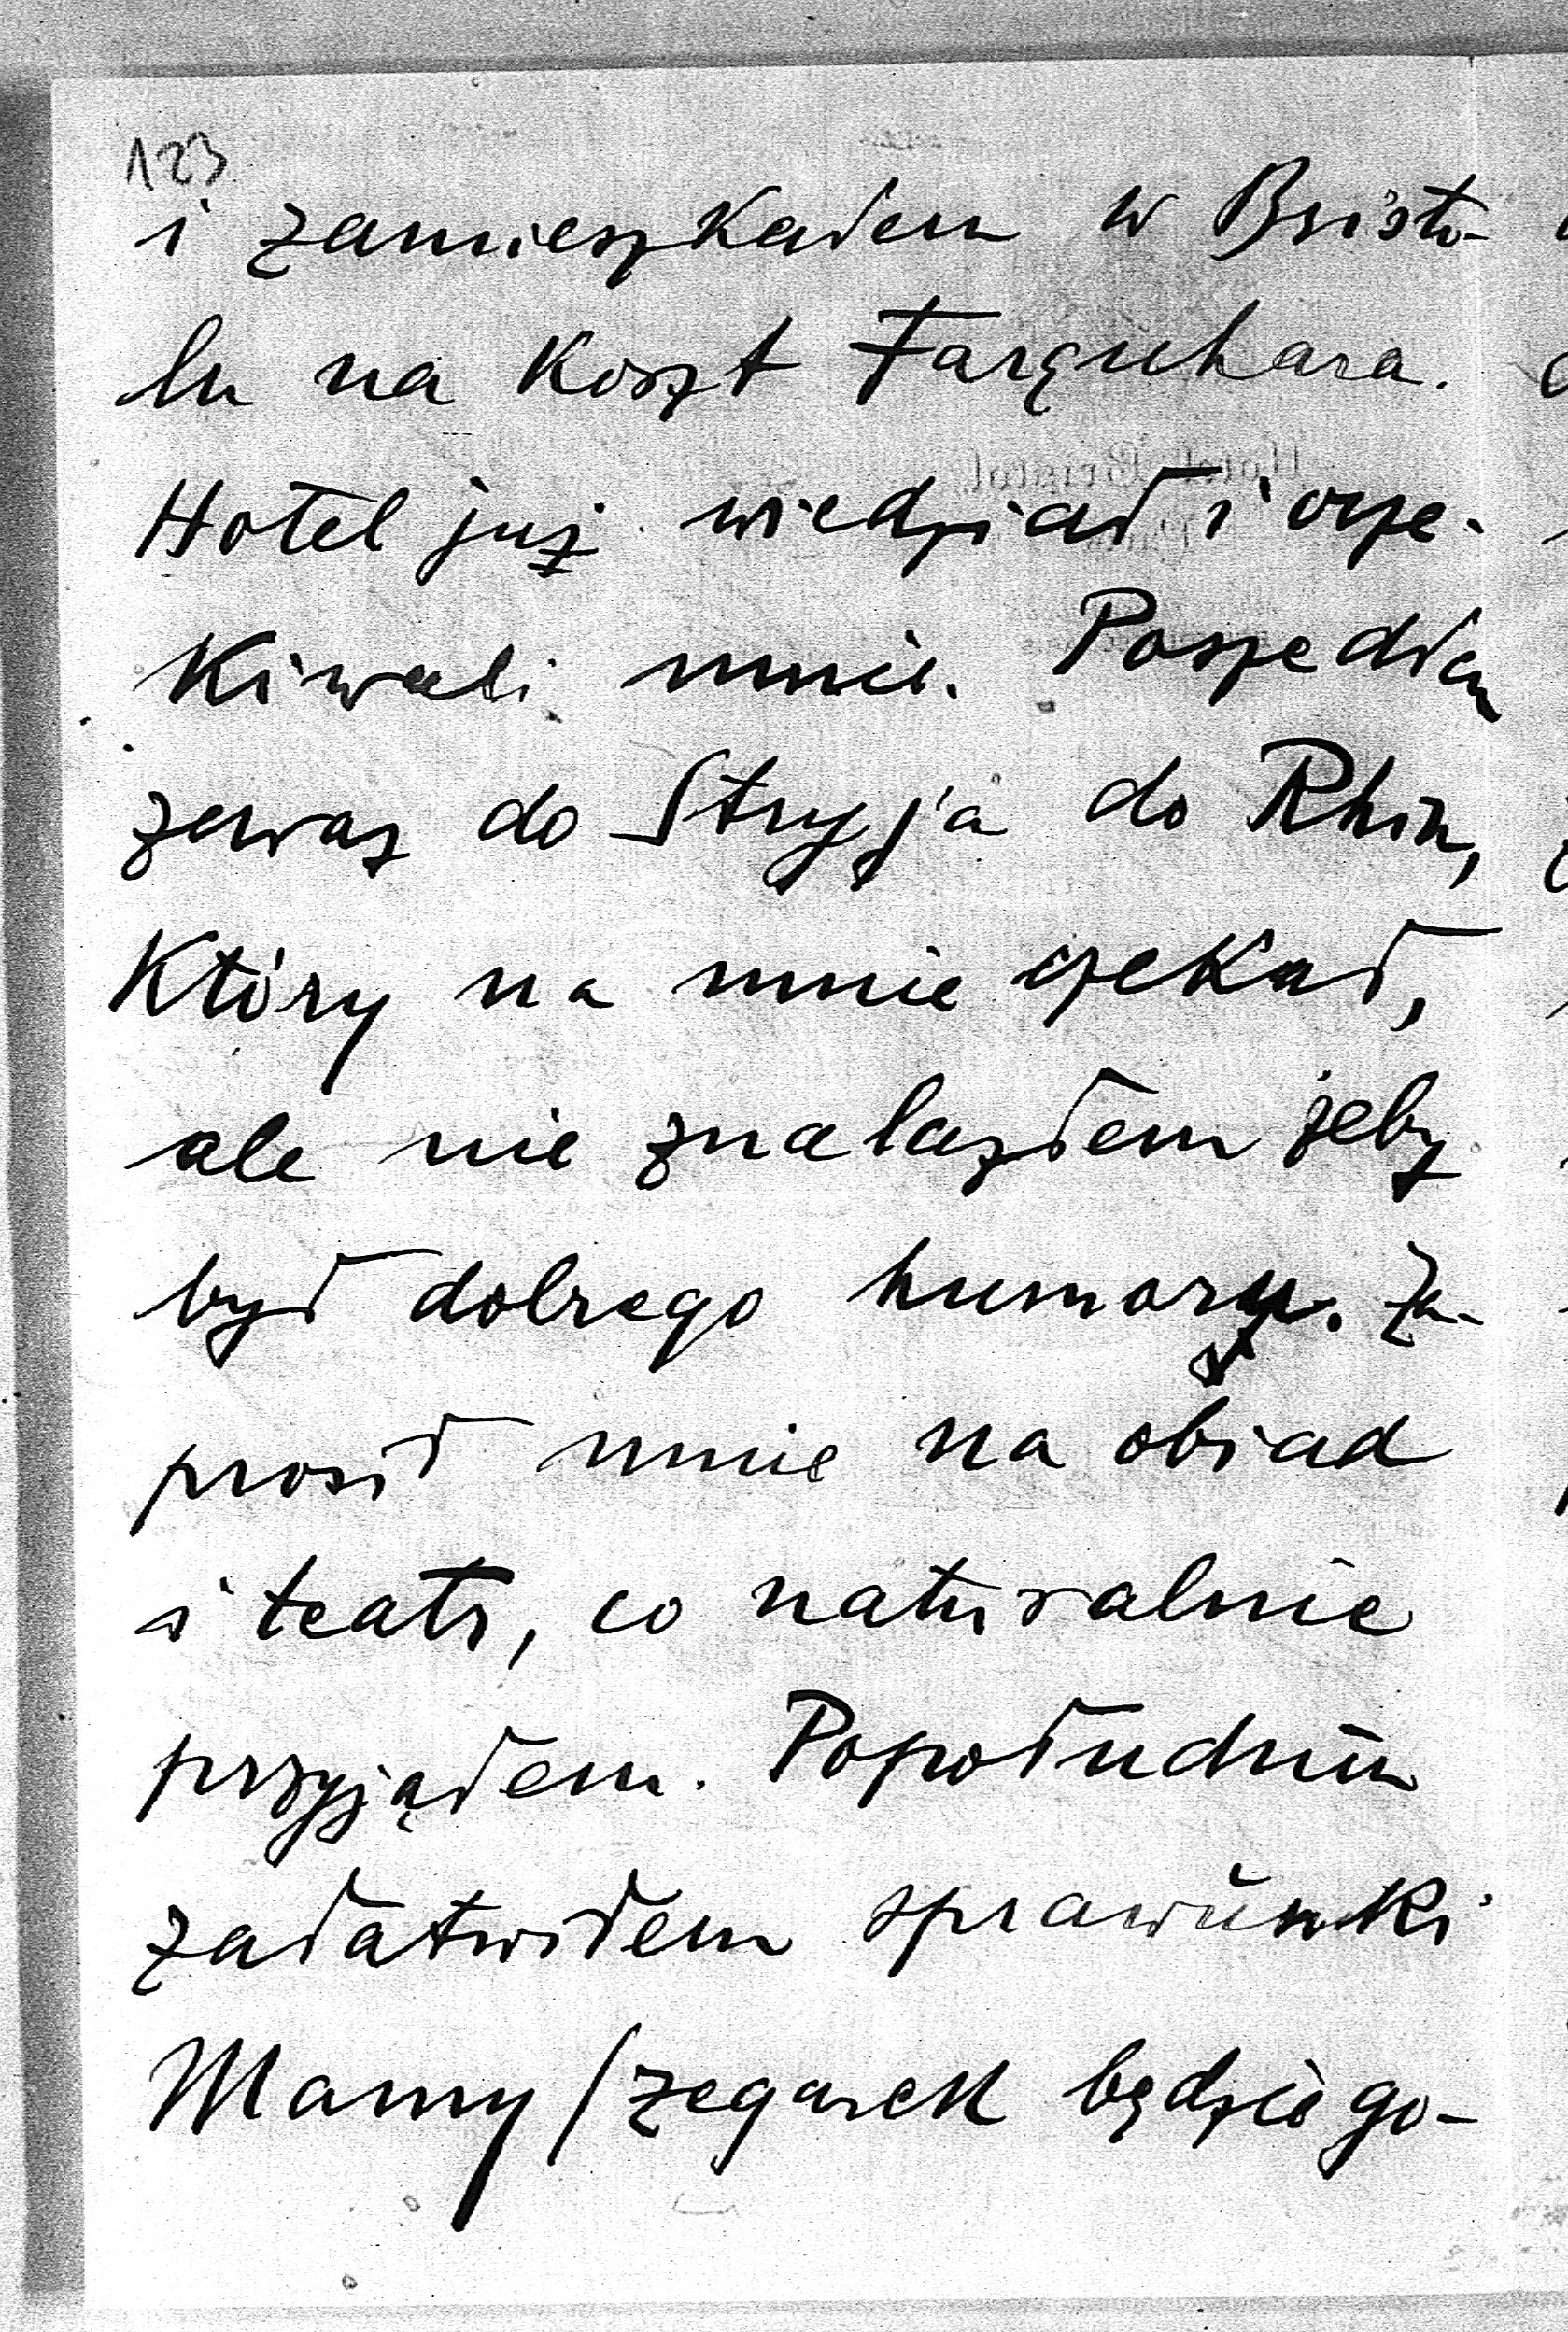 123
i zamieszkałem w Bristo-
lu na koszt Farquhara.
Hotel już wiedział i ocze-
kiwali mnie. Poszedłem
zaraz do Stryja do Rhin,
który na mnie czekał,
ale nie znalazłem żeby
był dobrego humoru. Za-
prosił mnie na obiad
i teatr, co naturalnie
przyjąłem. Popołudniu
załatwiłem sprawunki
Mamy /zegarek będzie go-